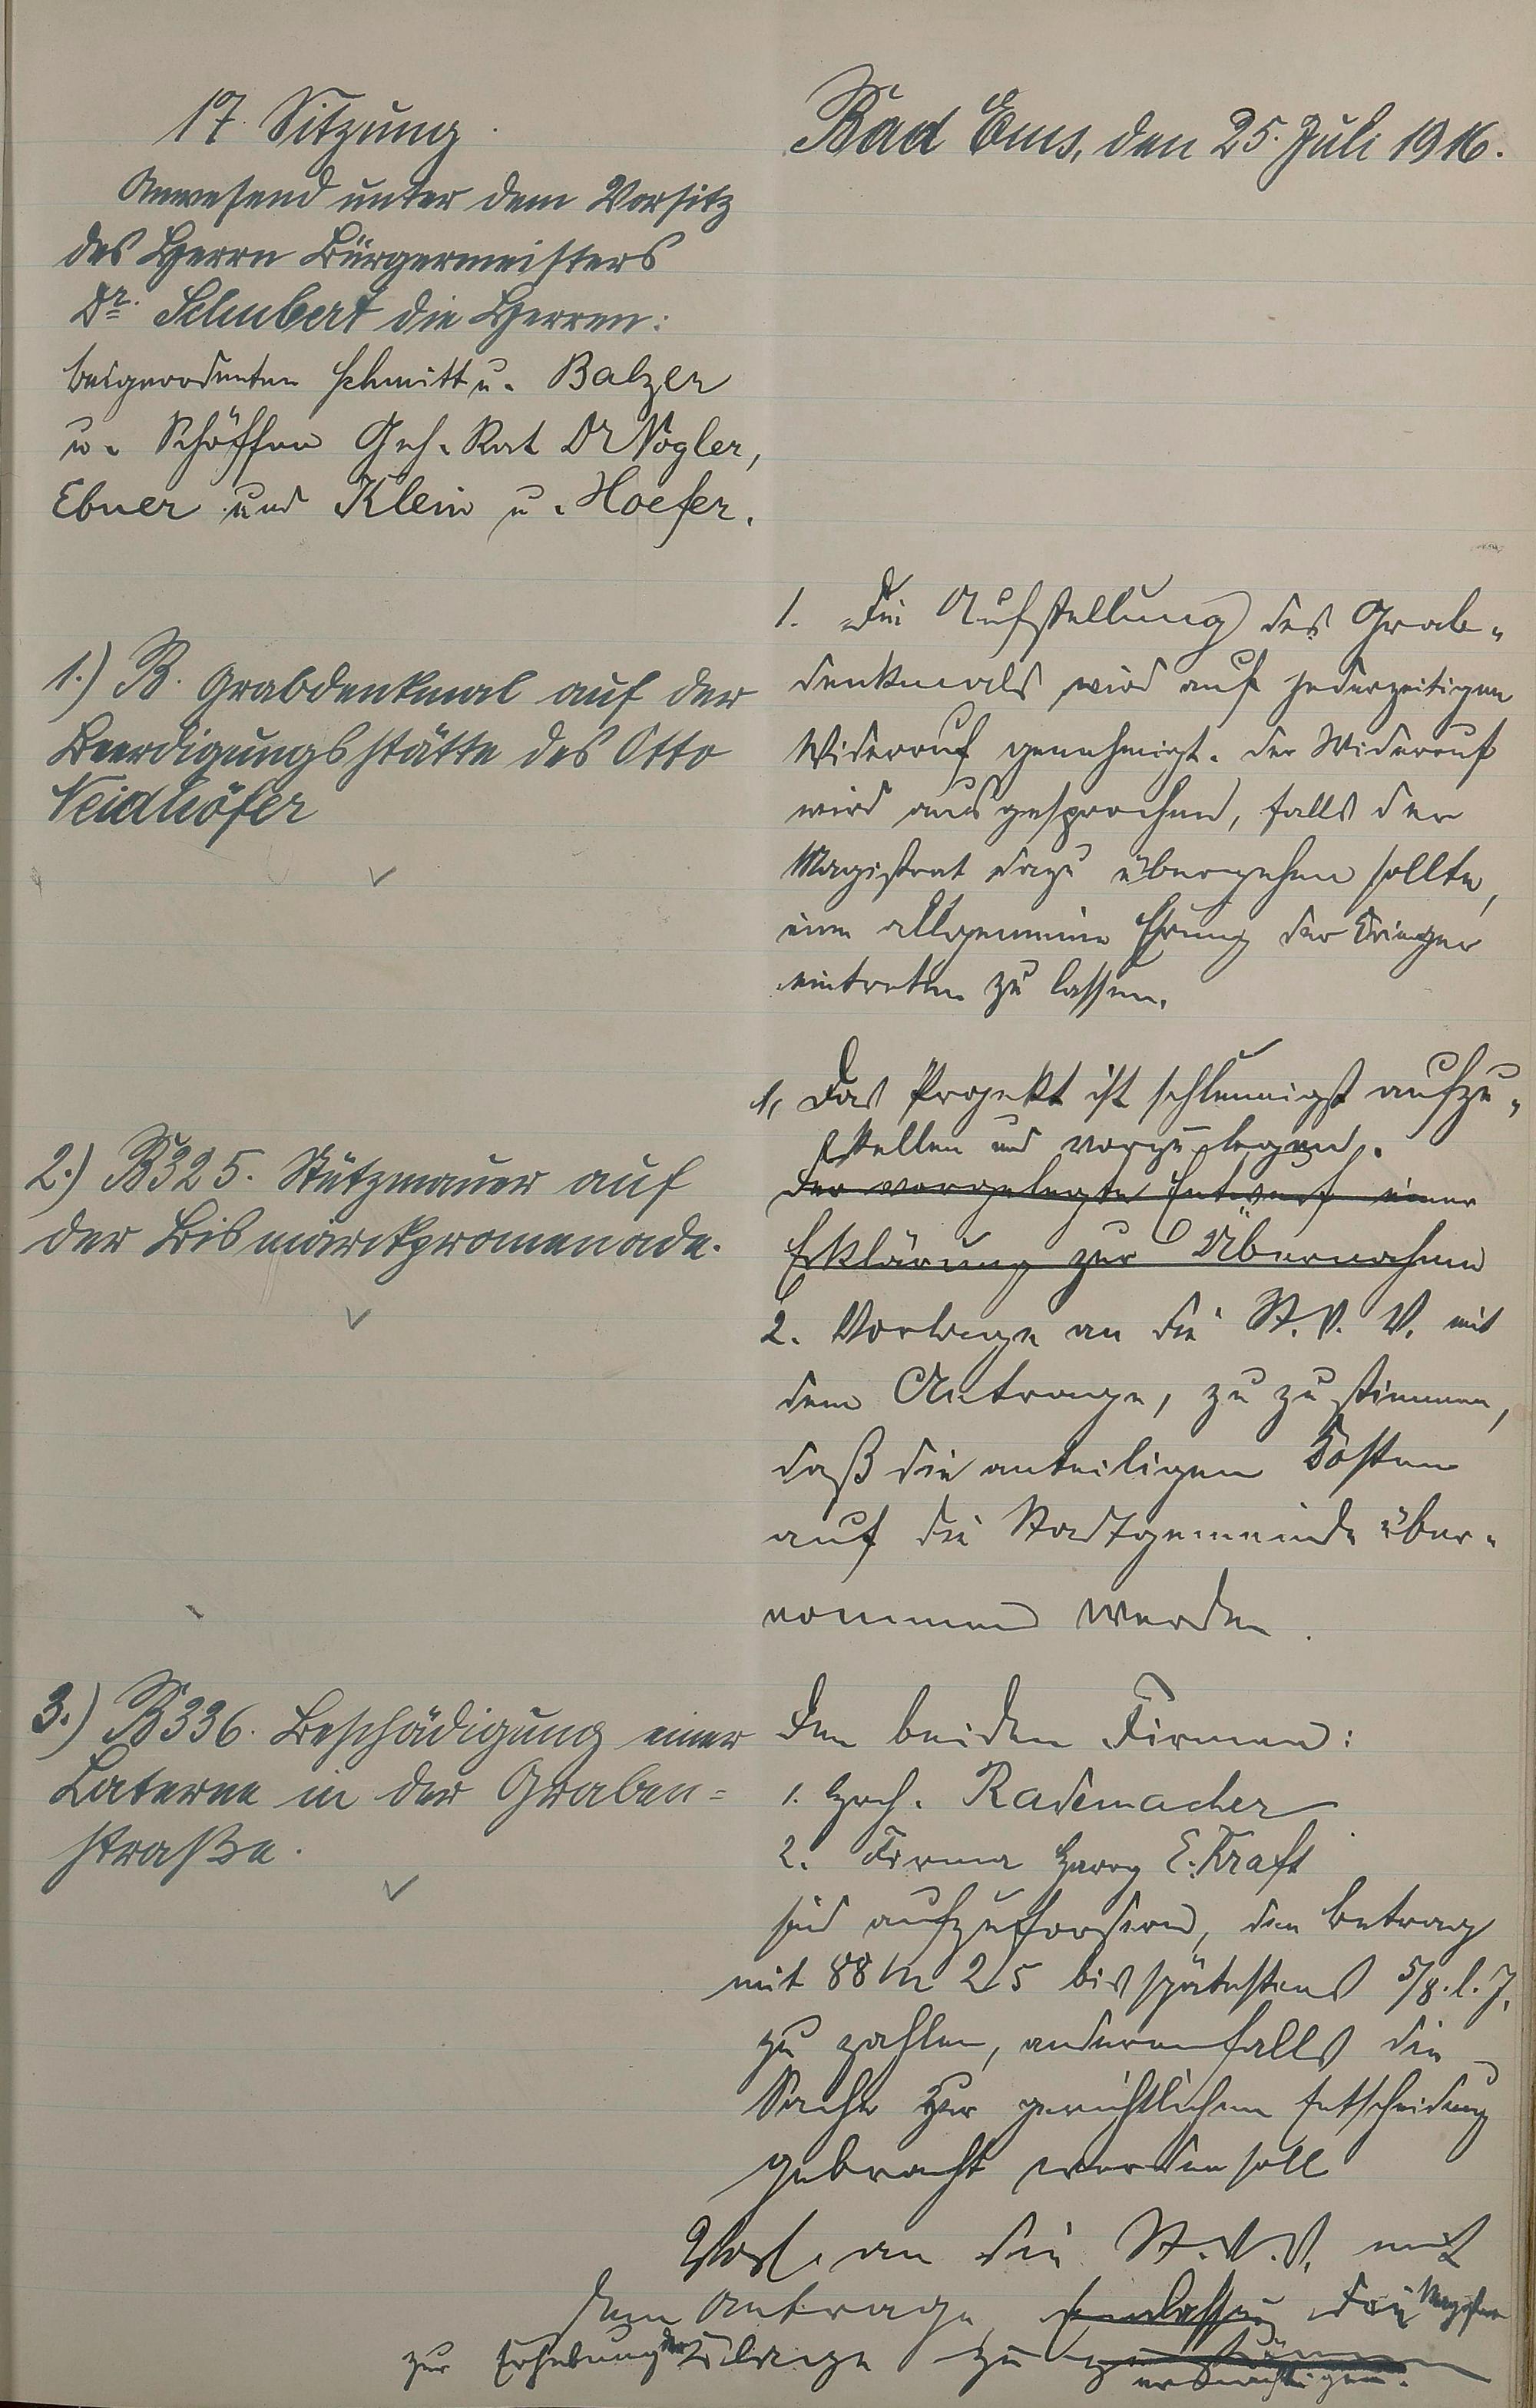 17. Sitzung.
Anwesend unter dem Vorsitz
des Herrn Bürgermeisters
Dr. Schubert die Herren:
Beigeordneten Schmitt u. Balzer
u. Schöffen Geh. Rat Dr Vogler,
Ebner und Klein u. Hoefer.
Bad Ems, den 25. Juli 1916.
1.) B. Grabdenkmal auf der
Beerdigungsstätte des Otto
Neidhöfer
1. Die Aufstellung des Grab-
denkmals wird auf jederzeitigen
Widerruf genehmigt. Der Widerruf
wird ausgesprochen, falls der
Magistrat dazu übergehen sollte,
eine allgemeine Ehrung der Krieger
eintreten zu lassen.
2.) B325. Stützmauer auf
der Bismarckpromenade.
1, Das Projekt ist schleunigst aufzu-
stellen und vorzulegen.
Der vorgelegte Entwurf einer
Erklärung zur Übernahme
2. Vorlage an die St. V. V. mit
dem Antrage, zuzustimmen,
daß die anteiligen Kosten
auf die Stadtgemeinde über-
nommen werden.
3.) B336. Beschädigung einer
Laterne in der Graben=
straße.
Den beiden Firmen:
1. Rademacher
2. Firma Georg E. Kraft
sind aufzufordern, den Betrag
mit 88 M 25 bis spätestens 5/8. l. J.
zu zahlen, anderenfalls die
Sache zur gerichtlichen Entscheidung
gebracht werden soll
Vorl. an die St. V. V. mit
dem Antrage, den Magistrat
zur Erhebung der Klage zu zu
ermächtigen.